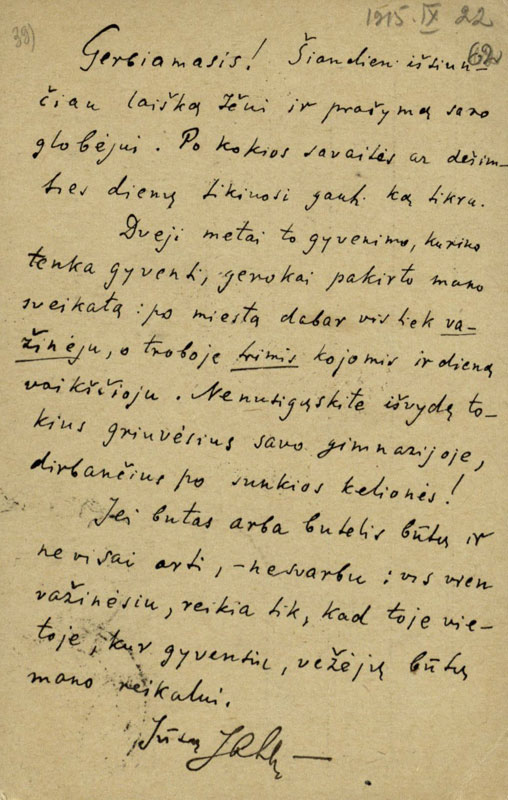 39)
1915. IX 22
62
Gerbiamasis! Šiandien išsiun-
čiau laišką Ičui ir prašymą savo
globėjui. Po kokios savaitės ar dešim-
ties dienų tikiuosi gauti ką tikra.
Dveji metai to gyvenimo, kurino
tenka gyventi, gerokai pakirto mano
sveikatą: po miestą dabar vis tiek va-
žinėju, o troboje trimis kojomis ir dieną
vaikščioju. Nenusigąskite išvydę to-
kius griuvėsius savo gimnazijoje,
dirbančius po sunkios kelionės!
Jei butas arba butelis būtų ir
nevisai arti, – nesvarbu: vis vien
važinėsiu, reikia tik, kad toje vie-
toje, kur gyvensiu, vežėjų būtų
mano reikalui.
Jūsų